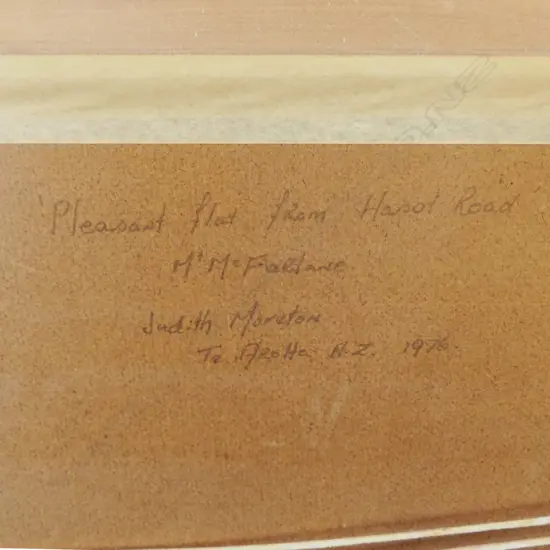 'Pleasant flat from Hasot Road'
Mt McFarlane.
Judith Moreton.
Te Aroha N.Z. 1976.